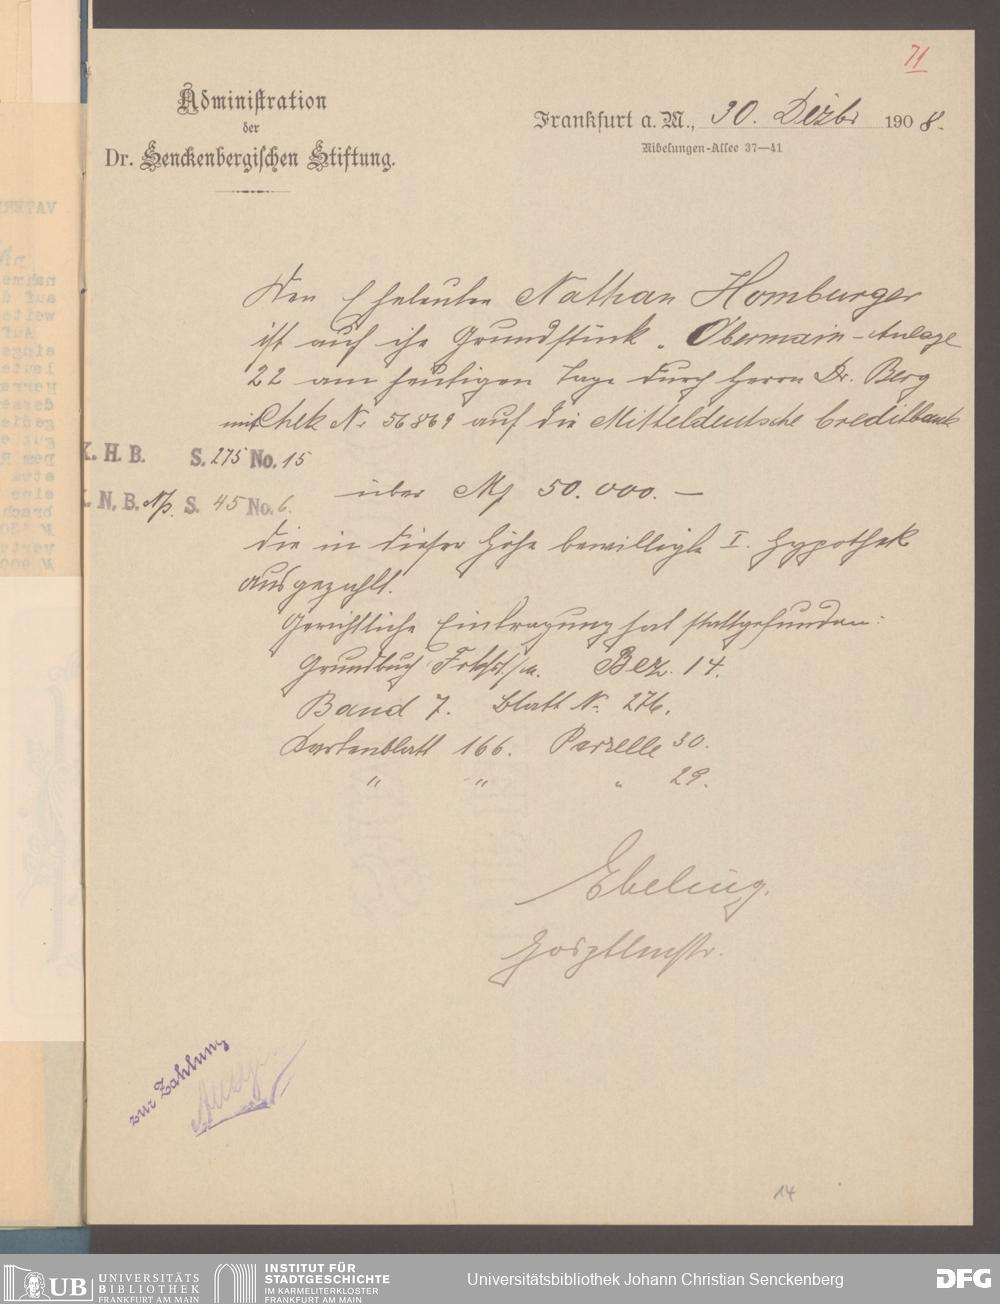 71
Administration
der
Dr. Senckenbergischen Stiftung.
Frankfurt a. M., 30. Dezbr 1908.
Nibelungen-Allee 37—41
Den Eheleuten Nathan Homburger
ist auf ihr Grundstück, Obermain-Anlage
22 am heutigen Tage durch Herrn Dr. Berg
mit Chek Nr 56869 auf die Mitteldeutsche Creditbank
K. H. B. S. 275 No. 15
über M 50.000.—
K. N. B. S. 45 No. 6.
die in dieser Höhe bewilligte I. Hypothek
ausgezahlt.
Gerichtliche Eintragung hat stattgefunden:
Grundbuch Frkfrt a/m. Bez. 14.
Band 7. Blatt No 276.
Kartenblatt 166. Parzelle 30.
" " " 29.
Ebeling.
Hosptlmstr.
zur Zahlung
14
UB UNIVERSITÄTS
BIBLIOTHEK
FRANKFURT AM MAIN
INSTITUT FÜR
STADTGESCHICHTE
IM KARMELITERKLOSTER
FRANKFURT AM MAIN
Universitätsbibliothek Johann Christian Senckenberg
DFG